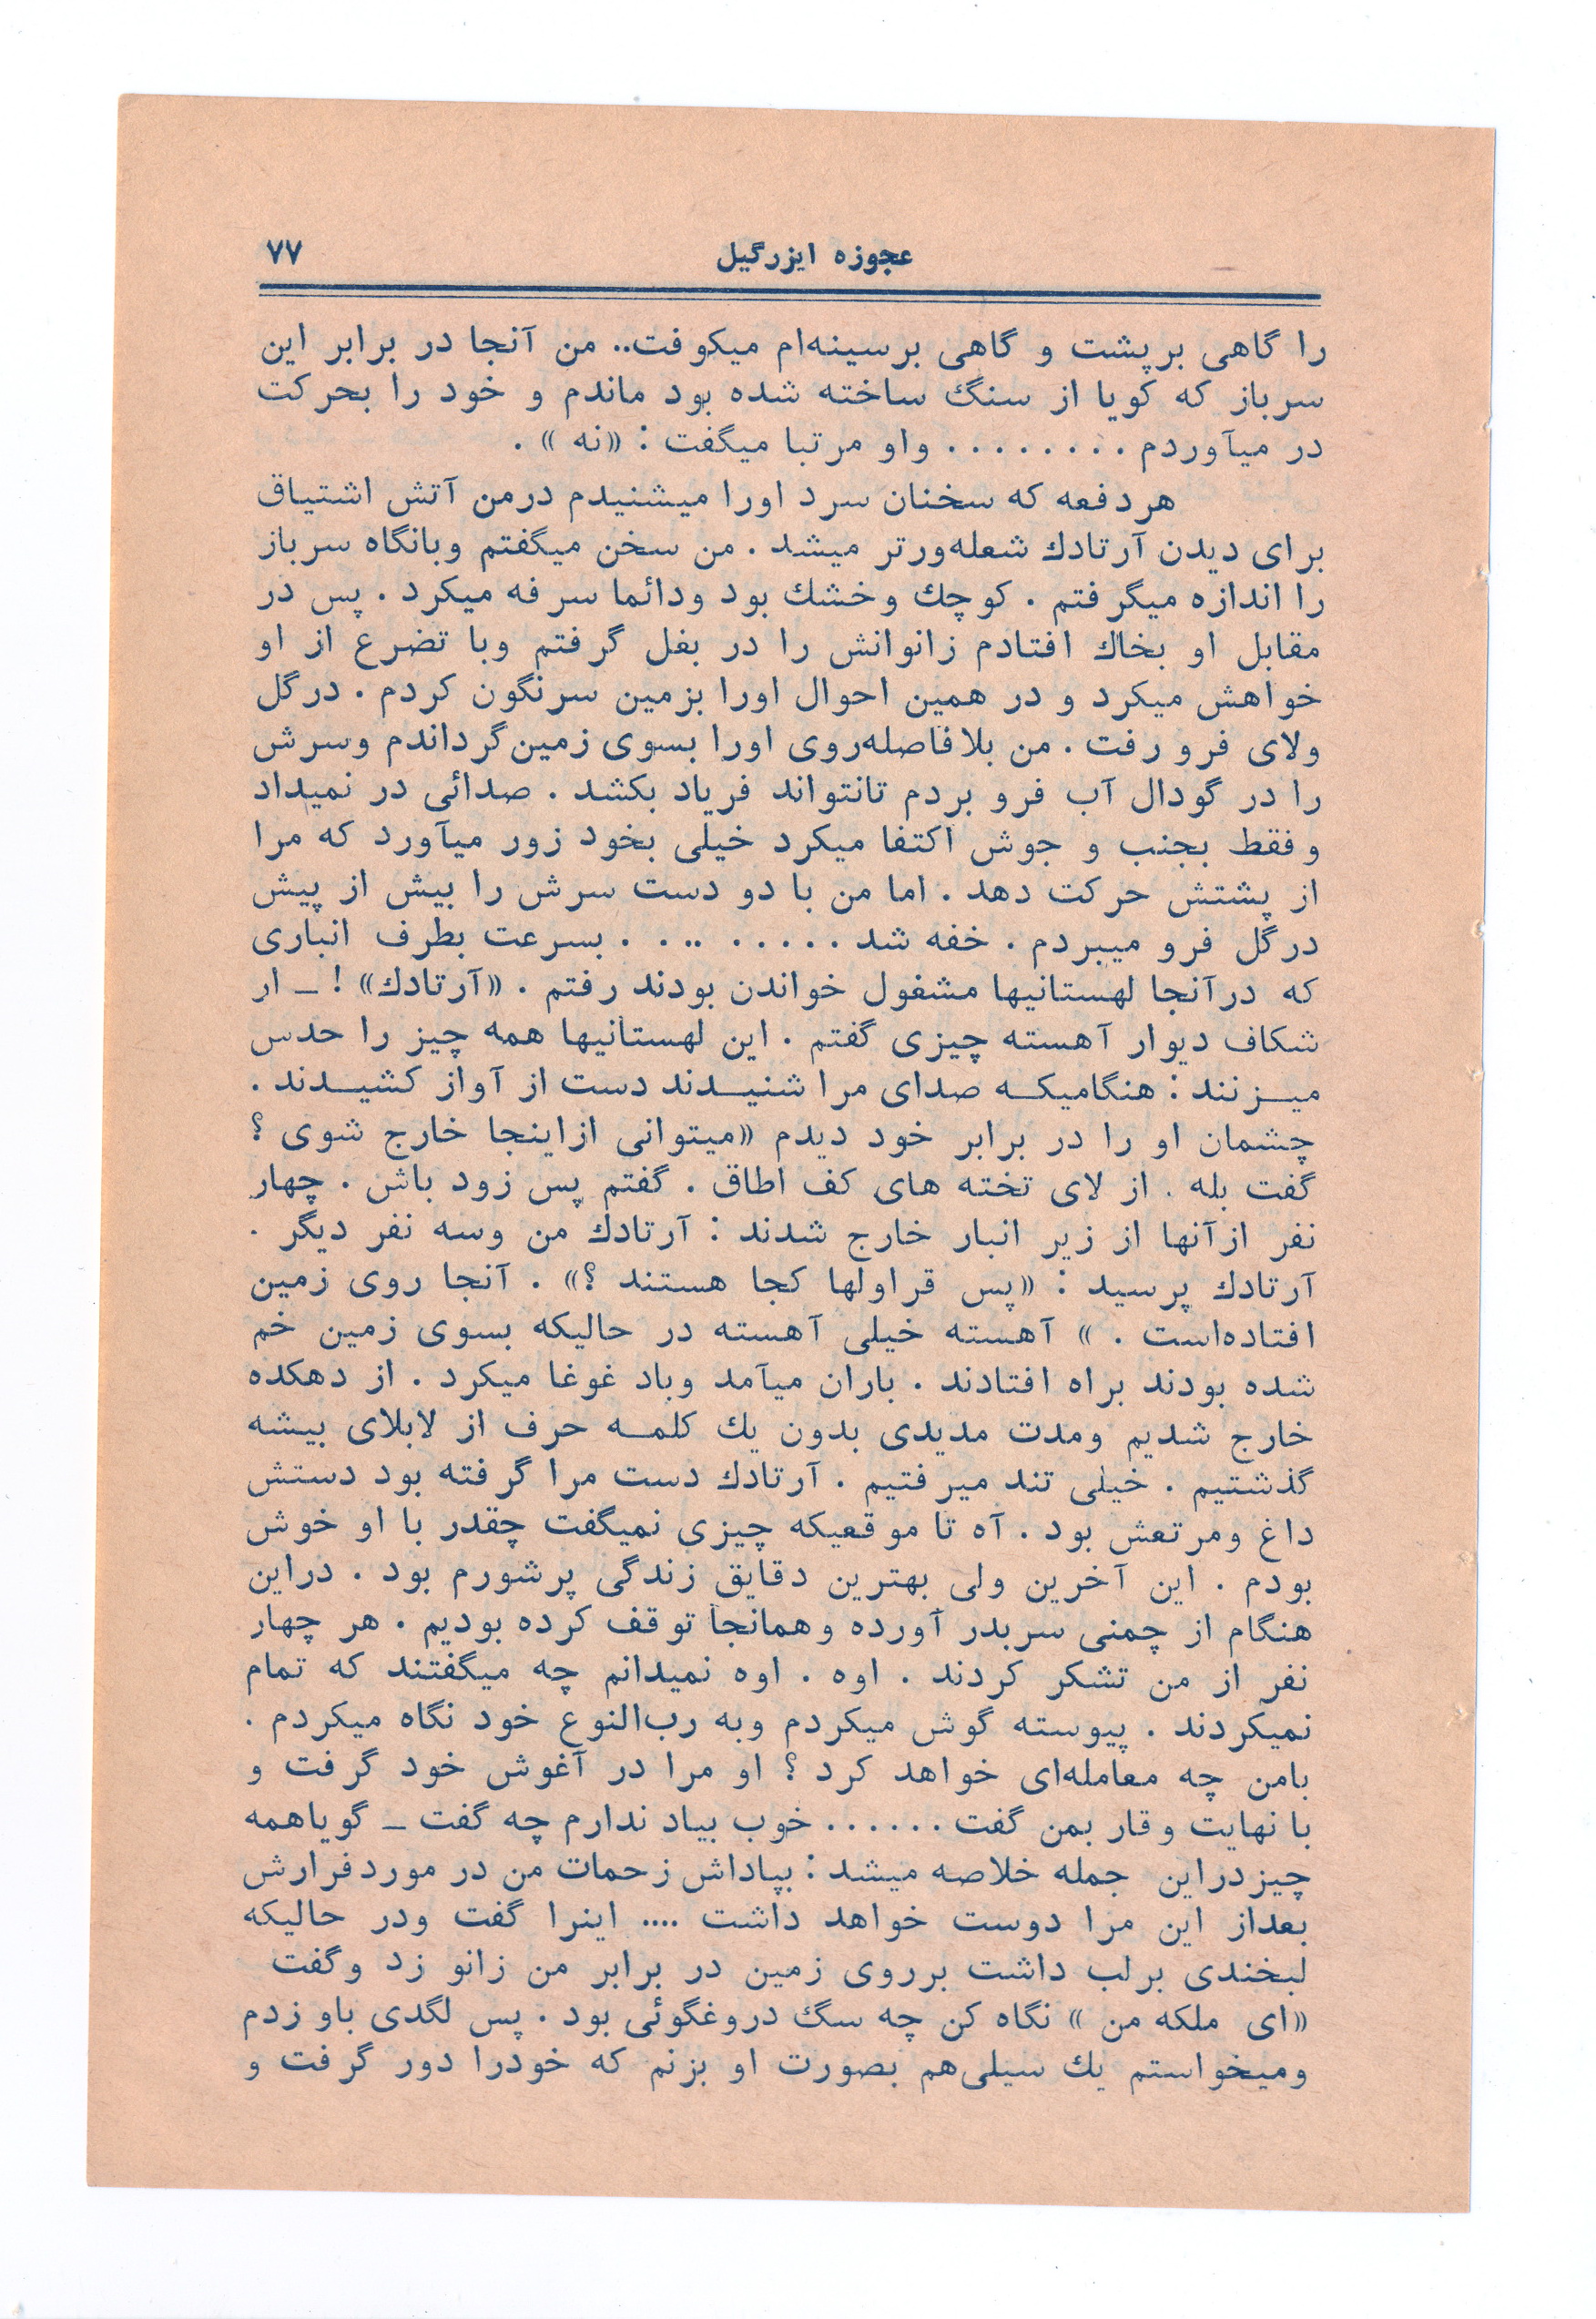 عجوزه ایزرگیل ۷۷
را گاهی برپشت و گاهی برسینه‌ام میکوفت.. من آنجا در برابر این
سرباز که کویا از سنگ ساخته شده بود ماندم و خود را بحرکت
در میآوردم . . . . . . . . واو مرتبا میگفت : «نه » .
هردفعه که سخنان سرد اورا میشنیدم درمن آتش اشتیاق
برای دیدن آرتادك شعله‌ورتر میشد . من سخن میگفتم وبانگاه سرباز
را اندازه میگرفتم . کوچك وخشك بود ودائما سرفه میکرد . پس در
مقابل او بخاك افتادم زانوانش را در بغل گرفتم وبا تضرع از او
خواهش میکرد و در همین احوال اورا بزمین سرنگون کردم . درگل
ولای فرو رفت . من بلافاصله‌روی اورا بسوی زمین‌گرداندم وسرش
را در گودال آب فرو بردم تانتواند فریاد بکشد . صدائی در نمیداد
وفقط بجنب و جوش اکتفا میکرد خیلی بخود زور میآورد که مرا
از پشتش حرکت دهد . اما من با دو دست سرش را بیش از پیش
درگل فرو میبردم . خفه شد . . . . . .. . . بسرعت بطرف انباری
که درآنجا لهستانیها مشغول خواندن بودند رفتم . «آرتادك» ! ــ از
شکاف دیوار آهسته چیزی گفتم . این لهستانیها همه چیز را حدس
میــزنند : هنگامیکــه صدای مرا شنیــدند دست از آواز کشیــدند .
چشمان او را در برابر خود دیدم «میتوانی ازاینجا خارج شوی ؟
گفت بله . از لای تخته های کف اطاق . گفتم پس زود باش . چهار
نفر ازآنها از زیر انبار خارج شدند : آرتادك من وسه نفر دیگر .
آرتادك پرسید : «پس قراولها کجا هستند ؟» . آنجا روی زمین
افتاده‌است . » آهسته خیلی آهسته در حالیکه بسوی زمین خم
شده بودند براه افتادند . باران میآمد وباد غوغا میکرد . از دهکده
خارج شدیم ومدت مدیدی بدون یك کلمــه حرف از لابلای بیشه
گذشتیم . خیلی تند میرفتیم . آرتادك دست مرا گرفته بود دستش
داغ ومرتعش بود . آه تا موقعیکه چیزی نمیگفت چقدر با او خوش
بودم . این آخرین ولی بهترین دقایق زندگی پرشورم بود . دراین
هنگام از چمنی سربدر آورده وهمانجا توقف کرده بودیم . هر چهار
نفر از من تشکر کردند . اوه . اوه نمیدانم چه میگفتند که تمام
نمیکردند . پیوسته گوش میکردم وبه رب‌النوع خود نگاه میکردم .
بامن چه معامله‌ای خواهد کرد ؟ او مرا در آغوش خود گرفت و
با نهایت وقار بمن گفت . . . . . . خوب بیاد ندارم چه گفت ــ گویاهمه
چیزدراین جمله خلاصه میشد : بپاداش زحمات من در موردفرارش
بعداز این مرا دوست خواهد داشت .... اینرا گفت ودر حالیکه
لبخندی برلب داشت برروی زمین در برابر من زانو زد وگفت
«ای ملکه من » نگاه کن چه سگ دروغگوئی بود . پس لگدی باو زدم
ومیخواستم یك سیلی‌هم بصورت او بزنم که خودرا دور گرفت و